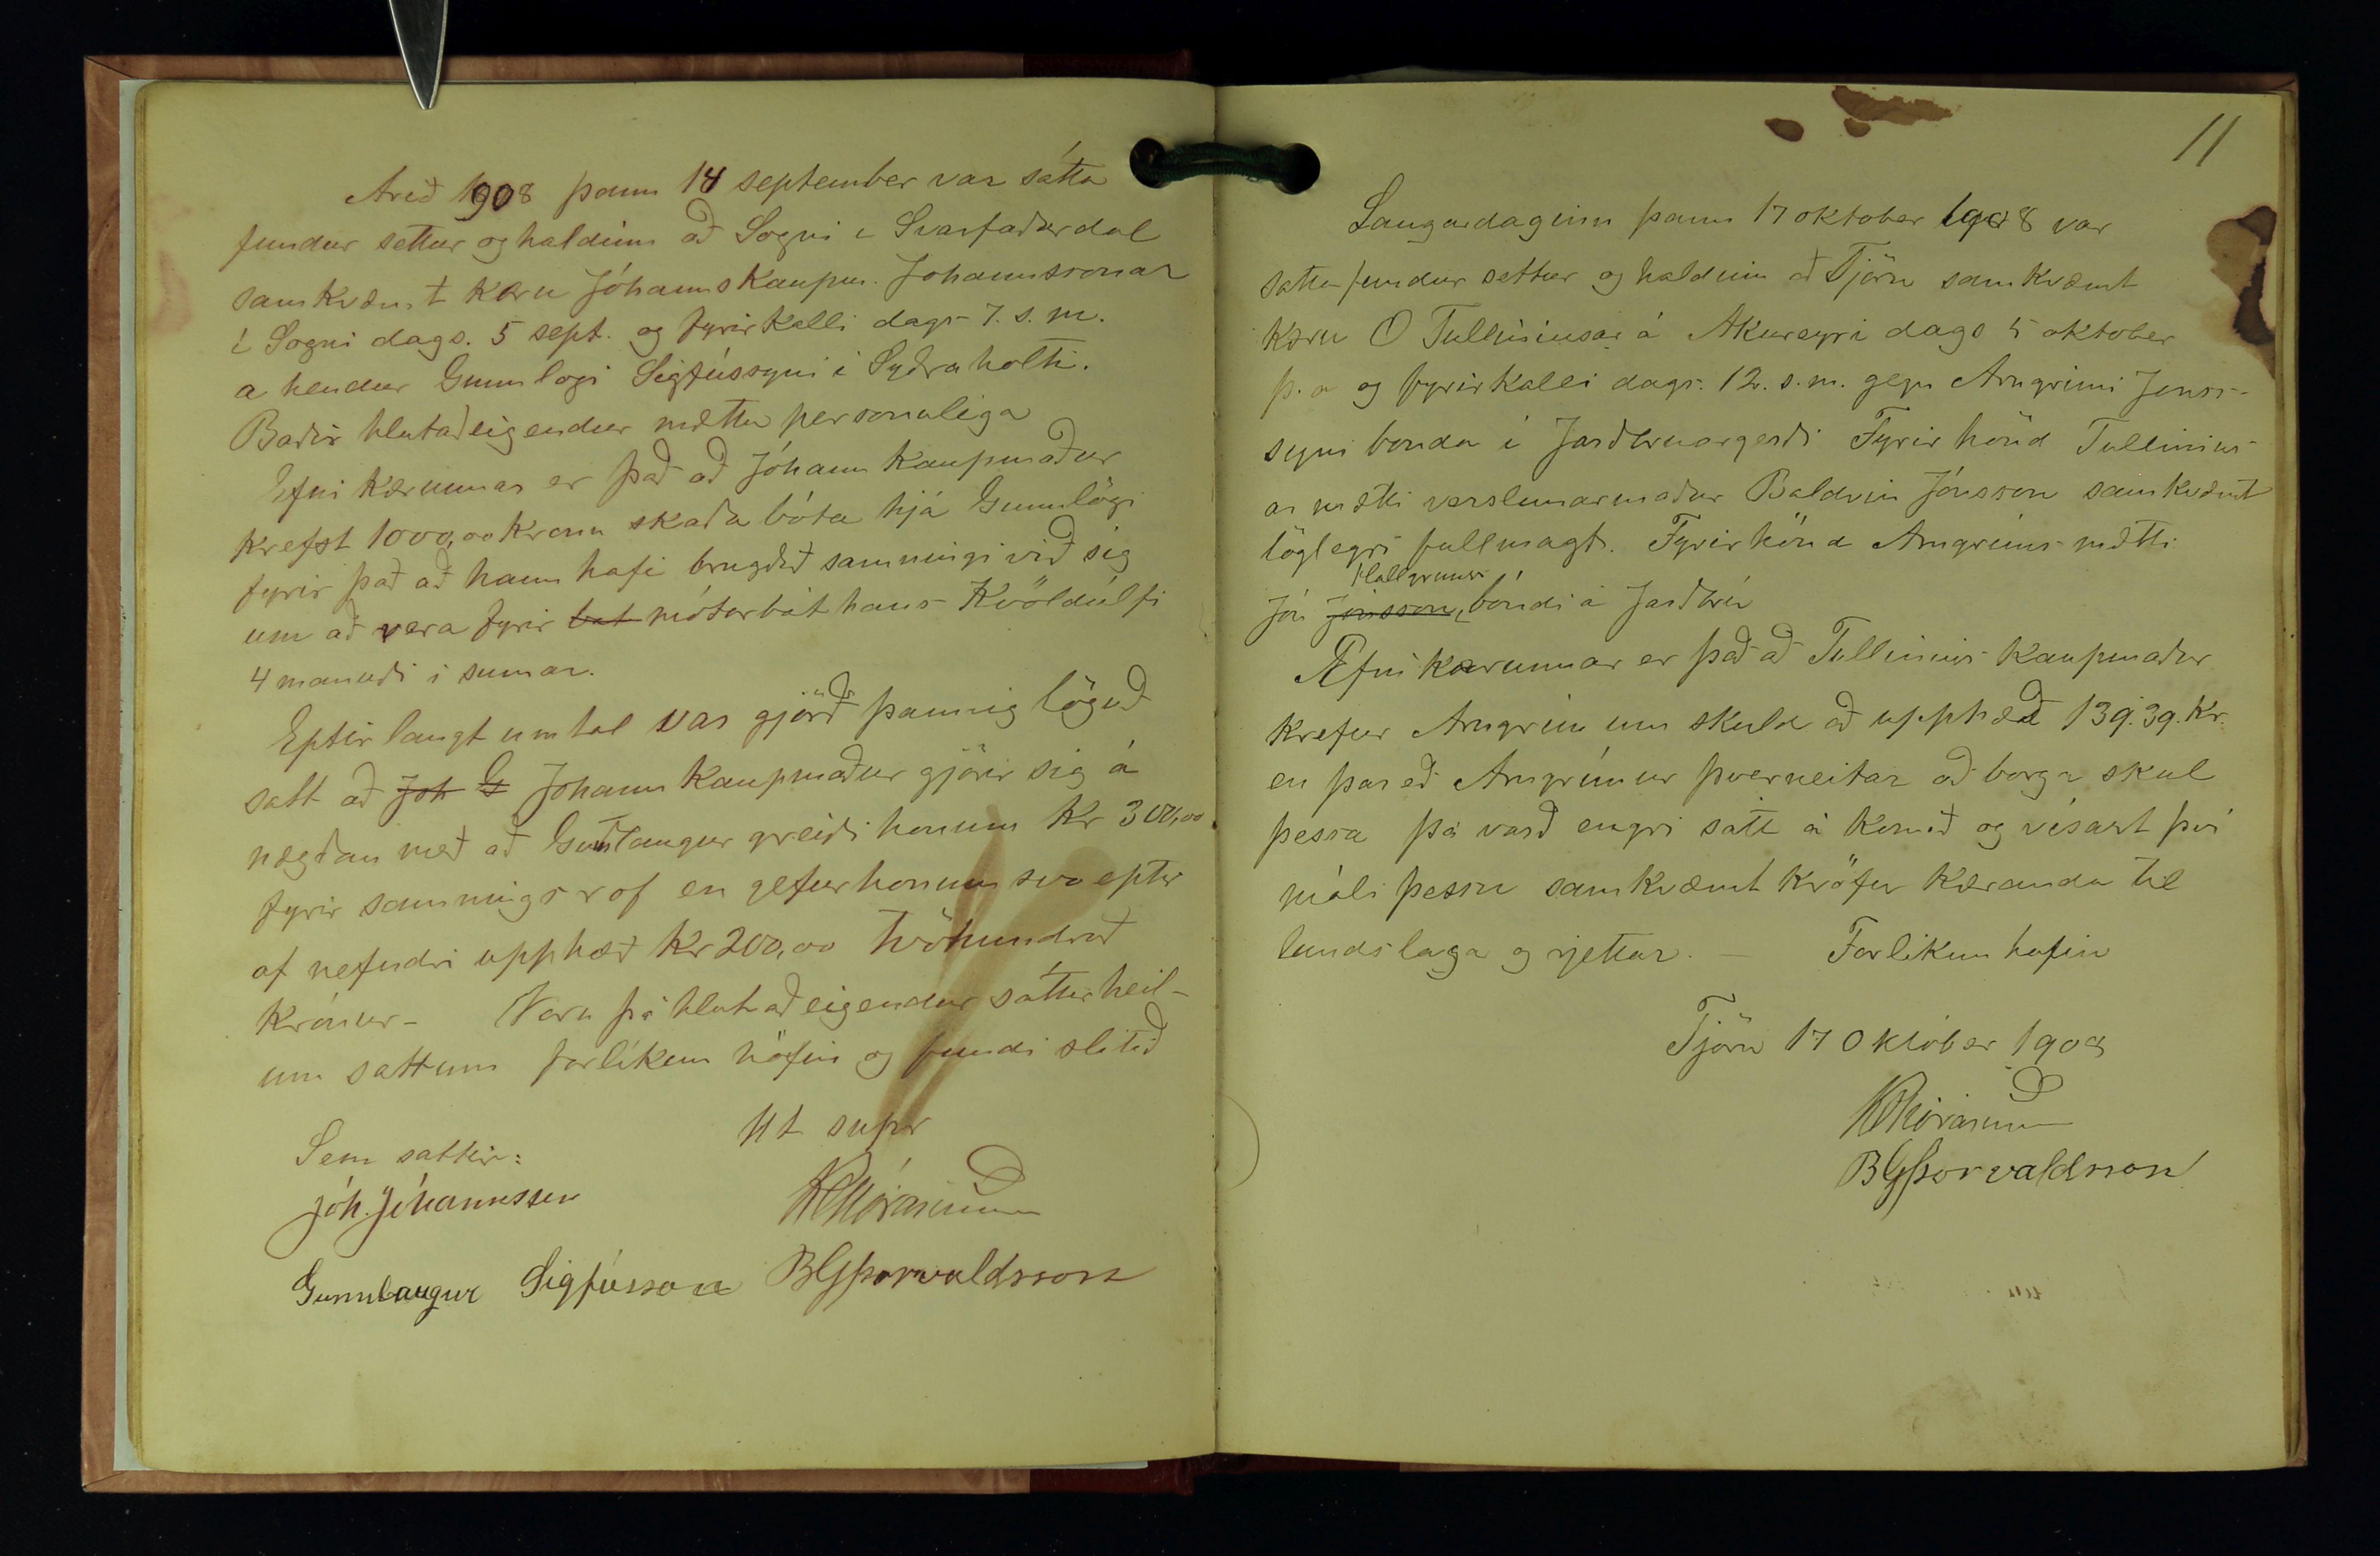 Arið 1908 þann 14 september var sátta
fundur settur og haldinn að Sogni i Svarfaðardal
samkvæmt kæru Jóhanns Kaupm. Johannssonar
i Sogni dags. 5 sept. og fyrirkalli dags 7. s. m.
a hendur Gunnlogi Sigfússyni i Syðraholti.
Baðir hlutaðeigendur mættu personuliga
Efni kærunnar er það að Jóhann Kaupmaður
krefst 1000,00 krona skaða bóta hjá Gunnlögi
fyrir það að hann hafi brugðið samningi við sig
um að vera fyrir bat mótorbát hans Kvöldúlfi
4 manuði i sumar.
Eptir langt umtal var gjörð þannig löguð
satt að Joh G Johann Kaupmaður gjörir sig á
nægðan með að Gunnlaugur greiði honum Kr 300,00
fyrir samnings rof en gefur honum svo eptir
af nefndri upphæð Kr 200,00 Tvöhundruð
Krónur - Voru þá hlutaðeigendur sáttir heil-
um sattum forlikun höfin og fundi slitið
Ut supr
Sem sattir:
Jóh. Jóhannsson
Gunnlaugur Sigfússon BGÞorvaldsson
11
Laugardaginn þann 17 oktober 1908 var
satta fundur settur og haldinn að Tjörn samkvæmt
kæru O Tulliniusar á Akureyri dags 5 oktober
þ. a og fyrirkalli dags. 12. s. m. gegn Arngrimi Jons-
syni bonda i Jarðbruargerði Fyrir hönd Tullinius-
ar mætti verslunarmaður Baldvin Jónsson samkvæmt
löglegri fullmagt. Fyrir hönd Arngrims mætti
Hallgrimss
Jón Jónsson, bóndi á Jarðbrú
Efni kærunnar er það að Tullinius Kaupmaður
krefur Arngrim um skuld að upphæð 139.39. Kr.
en þareð Arngrímur þverneitar að borga skul
þessa þá varð engri sátt á komið og visast því
máli þessu samkvæmt kröfu kæranda til
landslaga og rjettar. - Forlikun hafin
Tjörn 17 Oktober 1908
BGÞorvaldsson